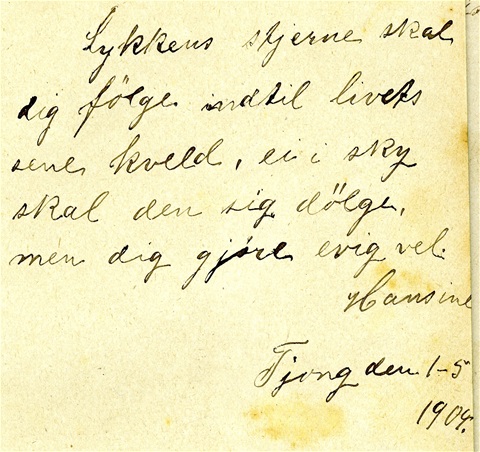 Lykkens stjerne skal
dig fölge indtil livets
sene kveld, ei i sky
skal den sig dölge,
men dig gjøre evig vel.
Hansine
Tjong den 1-5
1904.